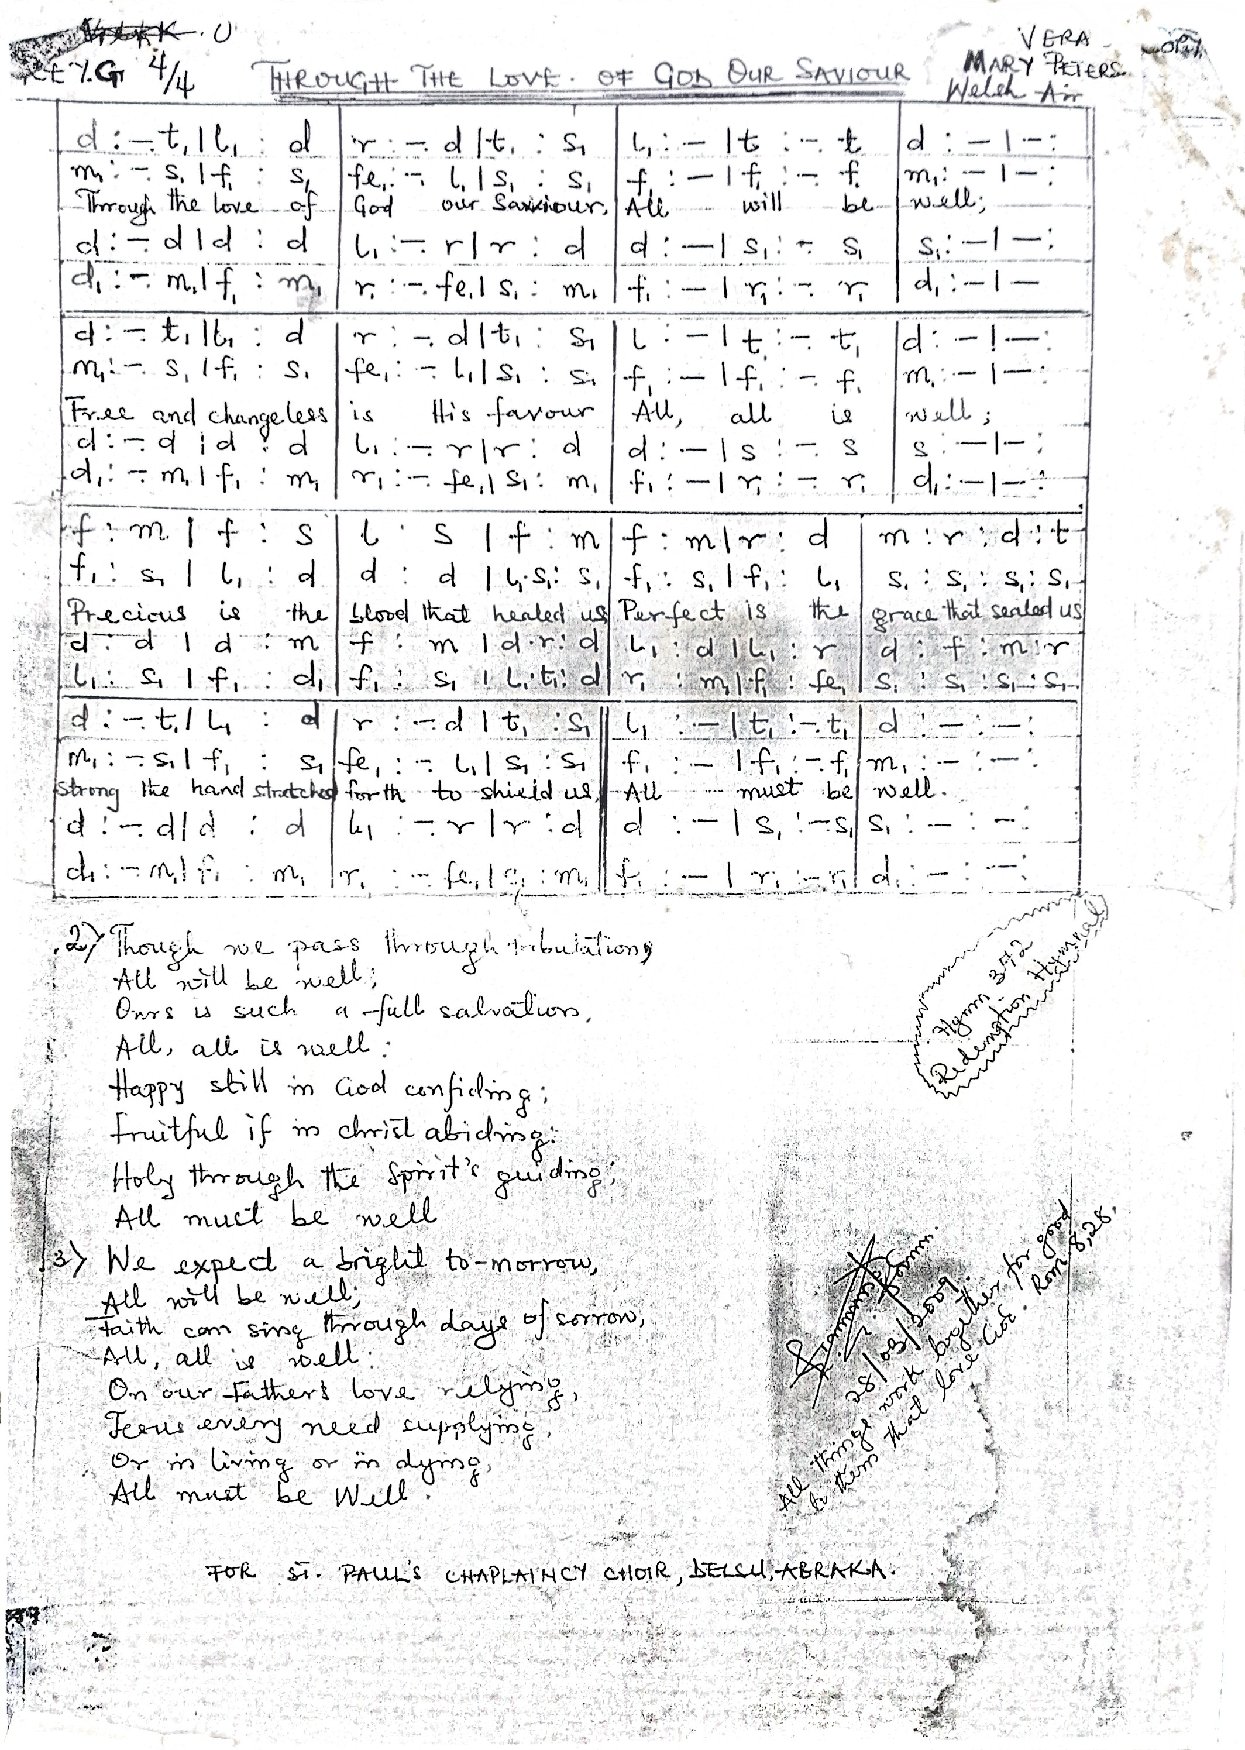 KEY.G 4/4
THROUGH THE LOVE OF GOD OUR SAVIOUR
VERA
MARY PETERS
Welsh Air
COPY
d :-. t₁ | l₁ : d | r :-. d | t₁ : s₁ | l₁ : - | t :-. t | d : - | - :
m₁ :-. s₁ | f₁ : s₁ | fe₁ :-. l₁ | s₁ : s₁ | f₁ : - | f₁ :-. f₁ | m₁ : - | - :
Through the love of God our Saviour, All will be well;
d :-. d | d : d | l₁ :-. r | r : d | d : - | s₁ :-. s₁ | s₁ : - | - :
d₁ :-. m₁ | f₁ : m₁ | r₁ :-. fe₁ | s₁ : m₁ | f₁ : - | r₁ :-. r₁ | d₁ : - | -
d :-. t₁ | l₁ : d | r :-. d | t₁ : s₁ | l : - | t :-. t₁ | d : - | - :
m₁ :-. s₁ | f₁ : s₁ | fe₁ :-. l₁ | s₁ : s₁ | f₁ : - | f₁ :-. f₁ | m₁ : - | - :
Free and changeless is His favour All, all is well;
d :-. d | d : d | l₁ :-. r | r : d | d : - | s :-. s | s : - | - :
d₁ :-. m₁ | f₁ : m₁ | r₁ :-. fe₁ | s₁ : m₁ | f₁ : - | r₁ :-. r₁ | d₁ : - | - :
f : m | f : s | l : s | f : m | f : m | r : d | m : r : d : t
f₁ : s₁ | l₁ : d | d : d | l₁.s₁ : s₁ | f₁ : s₁ | f₁ : l₁ | s₁ : s₁ : s₁ : s₁
Precious is the blood that healed us Perfect is the grace that sealed us
d : d | d : m | f : m | d.r : d | l₁ : d | l₁ : r | d : f : m : r
l₁ : s₁ | f₁ : d₁ | f₁ : s₁ | l₁.t₁ : d | r₁ : m₁ | f₁ : fe₁ | s₁ : s₁ : s₁ : s₁
d :-. t₁ | l₁ : d | r :-. d | t₁ : s₁ || l₁ : - | t₁ :-. t₁ | d : - : - :
m₁ :-. s₁ | f₁ : s₁ | fe₁ :-. l₁ | s₁ : s₁ || f₁ : - | f₁ :-. f₁ | m₁ : - : - :
Strong the hand stretched forth to shield us, All must be well.
d :-. d | d : d | l₁ :-. r | r : d || d : - | s₁ :-. s₁ | s₁ : - : - :
d₁ :-. m₁ | f₁ : m₁ | r₁ :-. fe₁ | s₁ : m₁ || f₁ : - | r₁ :-. r₁ | d₁ : - : - :
2) Though we pass through tribulations,
All will be well;
Ours is such a full salvation,
All, all is well:
Happy still in God confiding;
Fruitful if in Christ abiding:
Holy through the Spirit's guiding;
All must be well
3) We expect a bright to-morrow,
All will be well;
Faith can sing through days of sorrow,
All, all is well:
On our Father's love relying,
Jesus every need supplying,
Or in living or in dying,
All must be Well.
Hymn 372
Redemption Hymnal
28/03/2009.
All things work together for good
to them that love God. Rom 8:28.
FOR ST. PAUL'S CHAPLAINCY CHOIR, DELSU, ABRAKA.